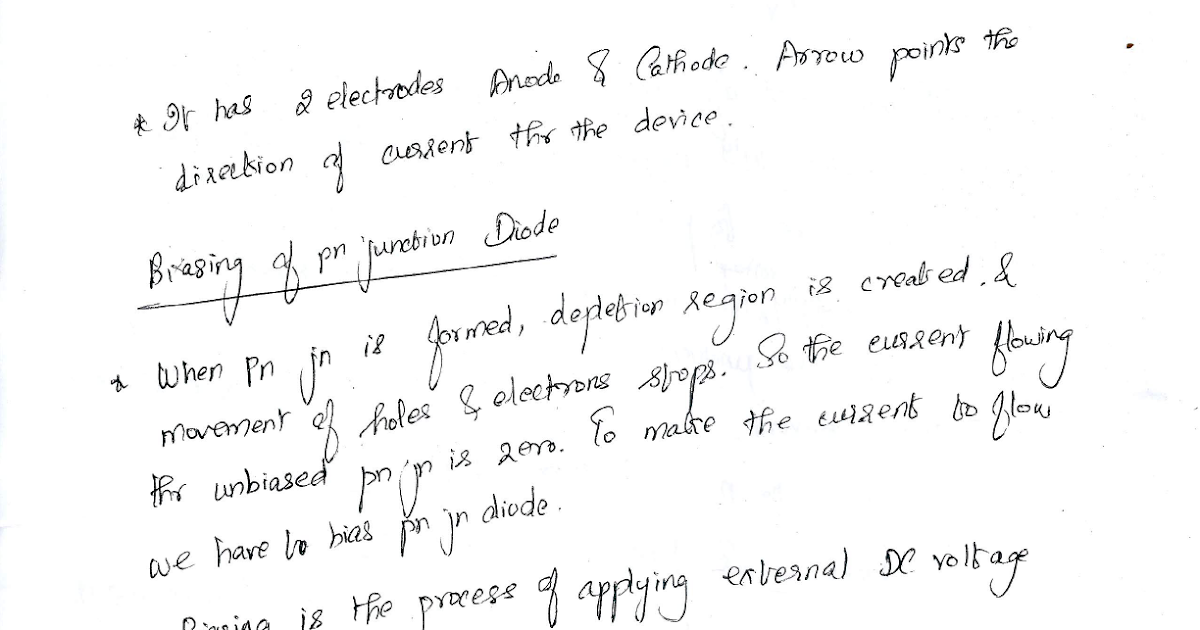 * It has 2 electrodes Anode & Cathode. Arrow points the
direction of current thr the device.
Biasing of pn junction Diode
* When Pn jn is formed, depletion region is created. &
movement of holes & electrons stops. So the current flowing
thr unbiased pn jn is zero. To make the current to flow
we have to bias pn jn diode.
Biasing is the process of applying external DC voltage